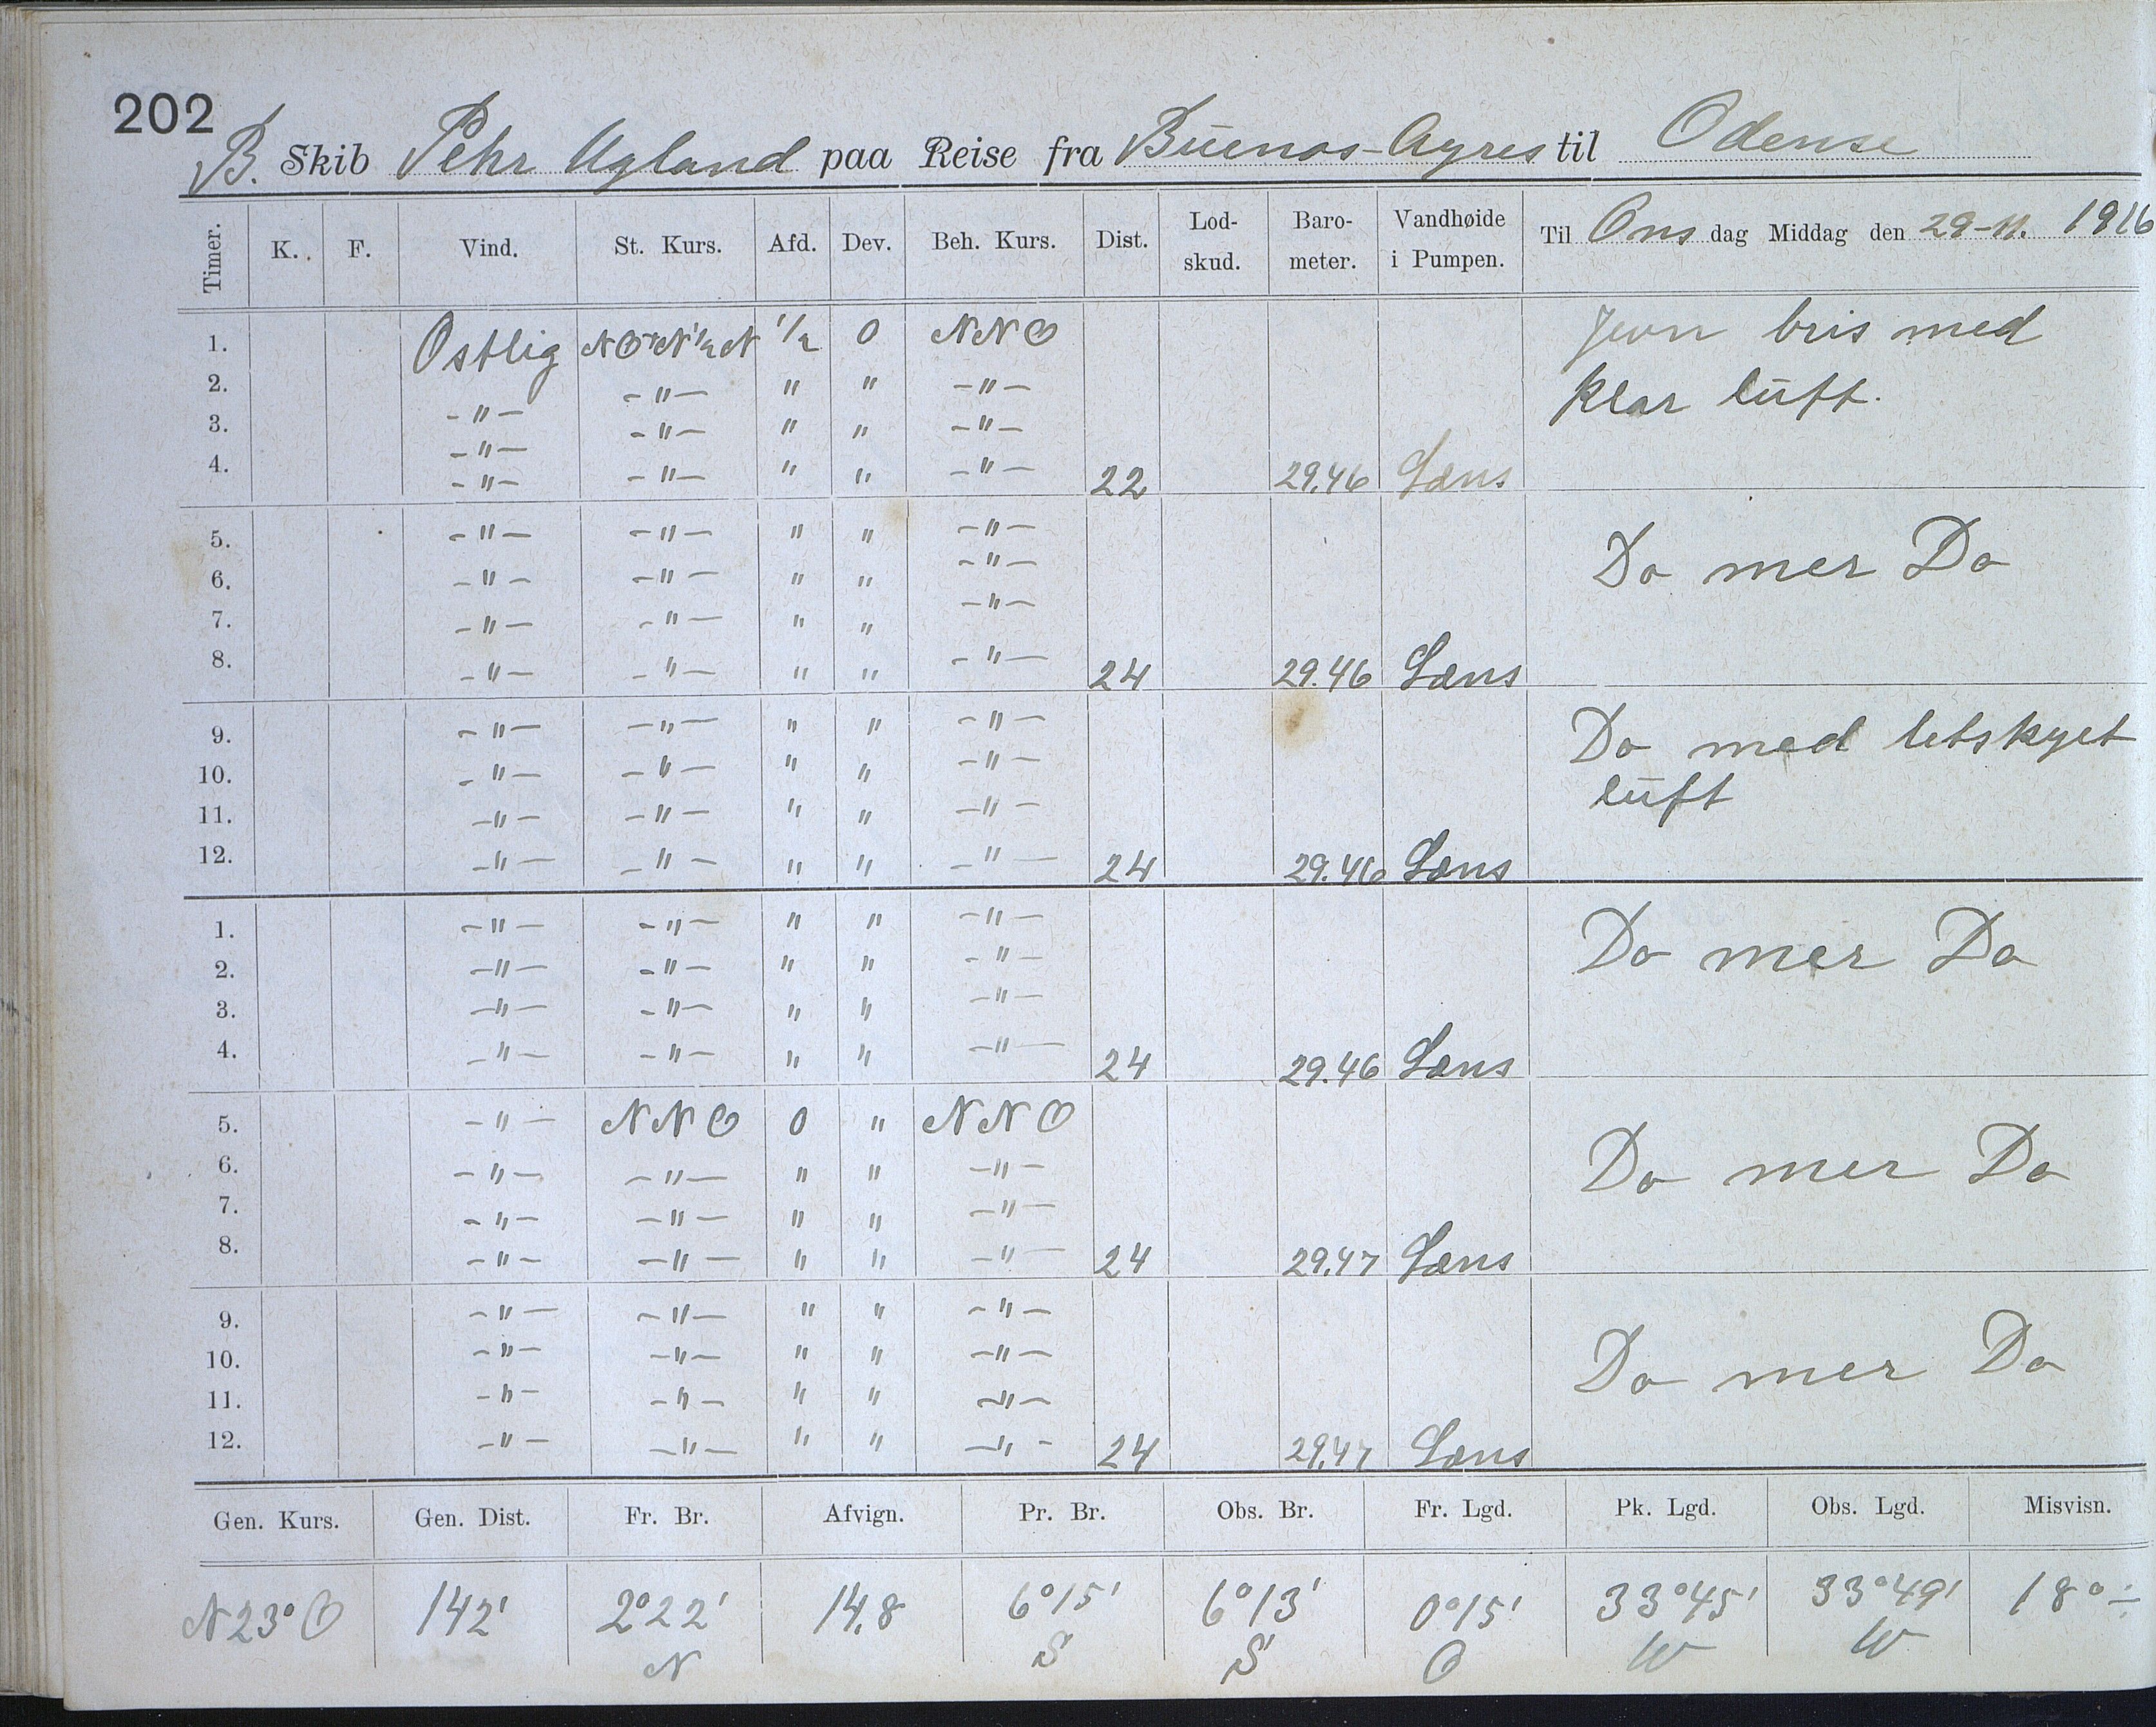 202
B. Skib Pehr Ugland paa Reise fra Buenos-Ayres til Odense
Timer. K. F. Vind. St. Kurs. Afd. Dev. Beh. Kurs. Dist. Lod-skud. Baro-meter. Vandhøide i Pumpen. Til Ons dag Middag den 29-11. 1916
1. Ostlig NOtN½N ½ 0 NNO Jevn bris med
2. -"- -"- " " -"- klar luft.
3. -"- -"- " " -"-
4. -"- -"- " " -"- 22 29.46 Læns
5. -"- -"- " " -"- Do mer Do
6. -"- -"- " " -"-
7. -"- -"- " " -"-
8. -"- -"- " " -"- 24 29.46 Læns
9. -"- -"- " " -"- Do med letskyet
10. -"- -"- " " -"- luft
11. -"- -"- " " -"-
12. -"- -"- " " -"- 24 29.46 Læns
1. -"- -"- " " -"- Do mer Do
2. -"- -"- " " -"-
3. -"- -"- " " -"-
4. -"- -"- " " -"- 24 29.46 Læns
5. -"- NNO 0 " NNO Do mer Do
6. -"- -"- " " -"-
7. -"- -"- " " -"-
8. -"- -"- " " -"- 24 29.47 Læns
9. -"- -"- " " -"- Do mer Do
10. -"- -"- " " -"-
11. -"- -"- " " -"-
12. -"- -"- " " -"- 24 29.47 Læns
Gen. Kurs. Gen. Dist. Fr. Br. Afvign. Pr. Br. Obs. Br. Fr. Lgd. Pk. Lgd. Obs. Lgd. Misvisn.
N23°O 142' 2°22' 14.8 6°15' 6°13' 0°15' 33°45' 33°49' 18°÷
N S S O W W